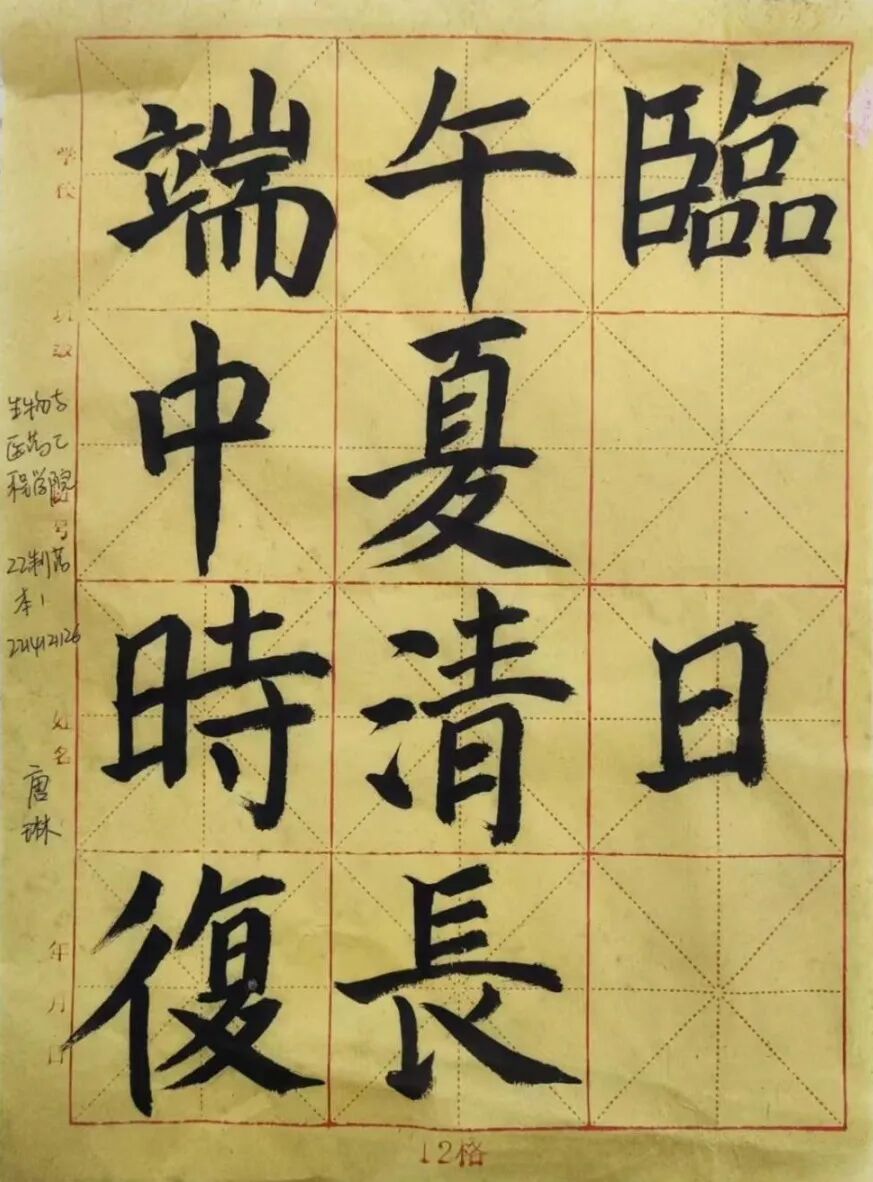 端午臨
中夏
時清日
復長
学校
生物与
医药工
程学院
号
22制药
本1
姓名
唐
琳
年月日
12格